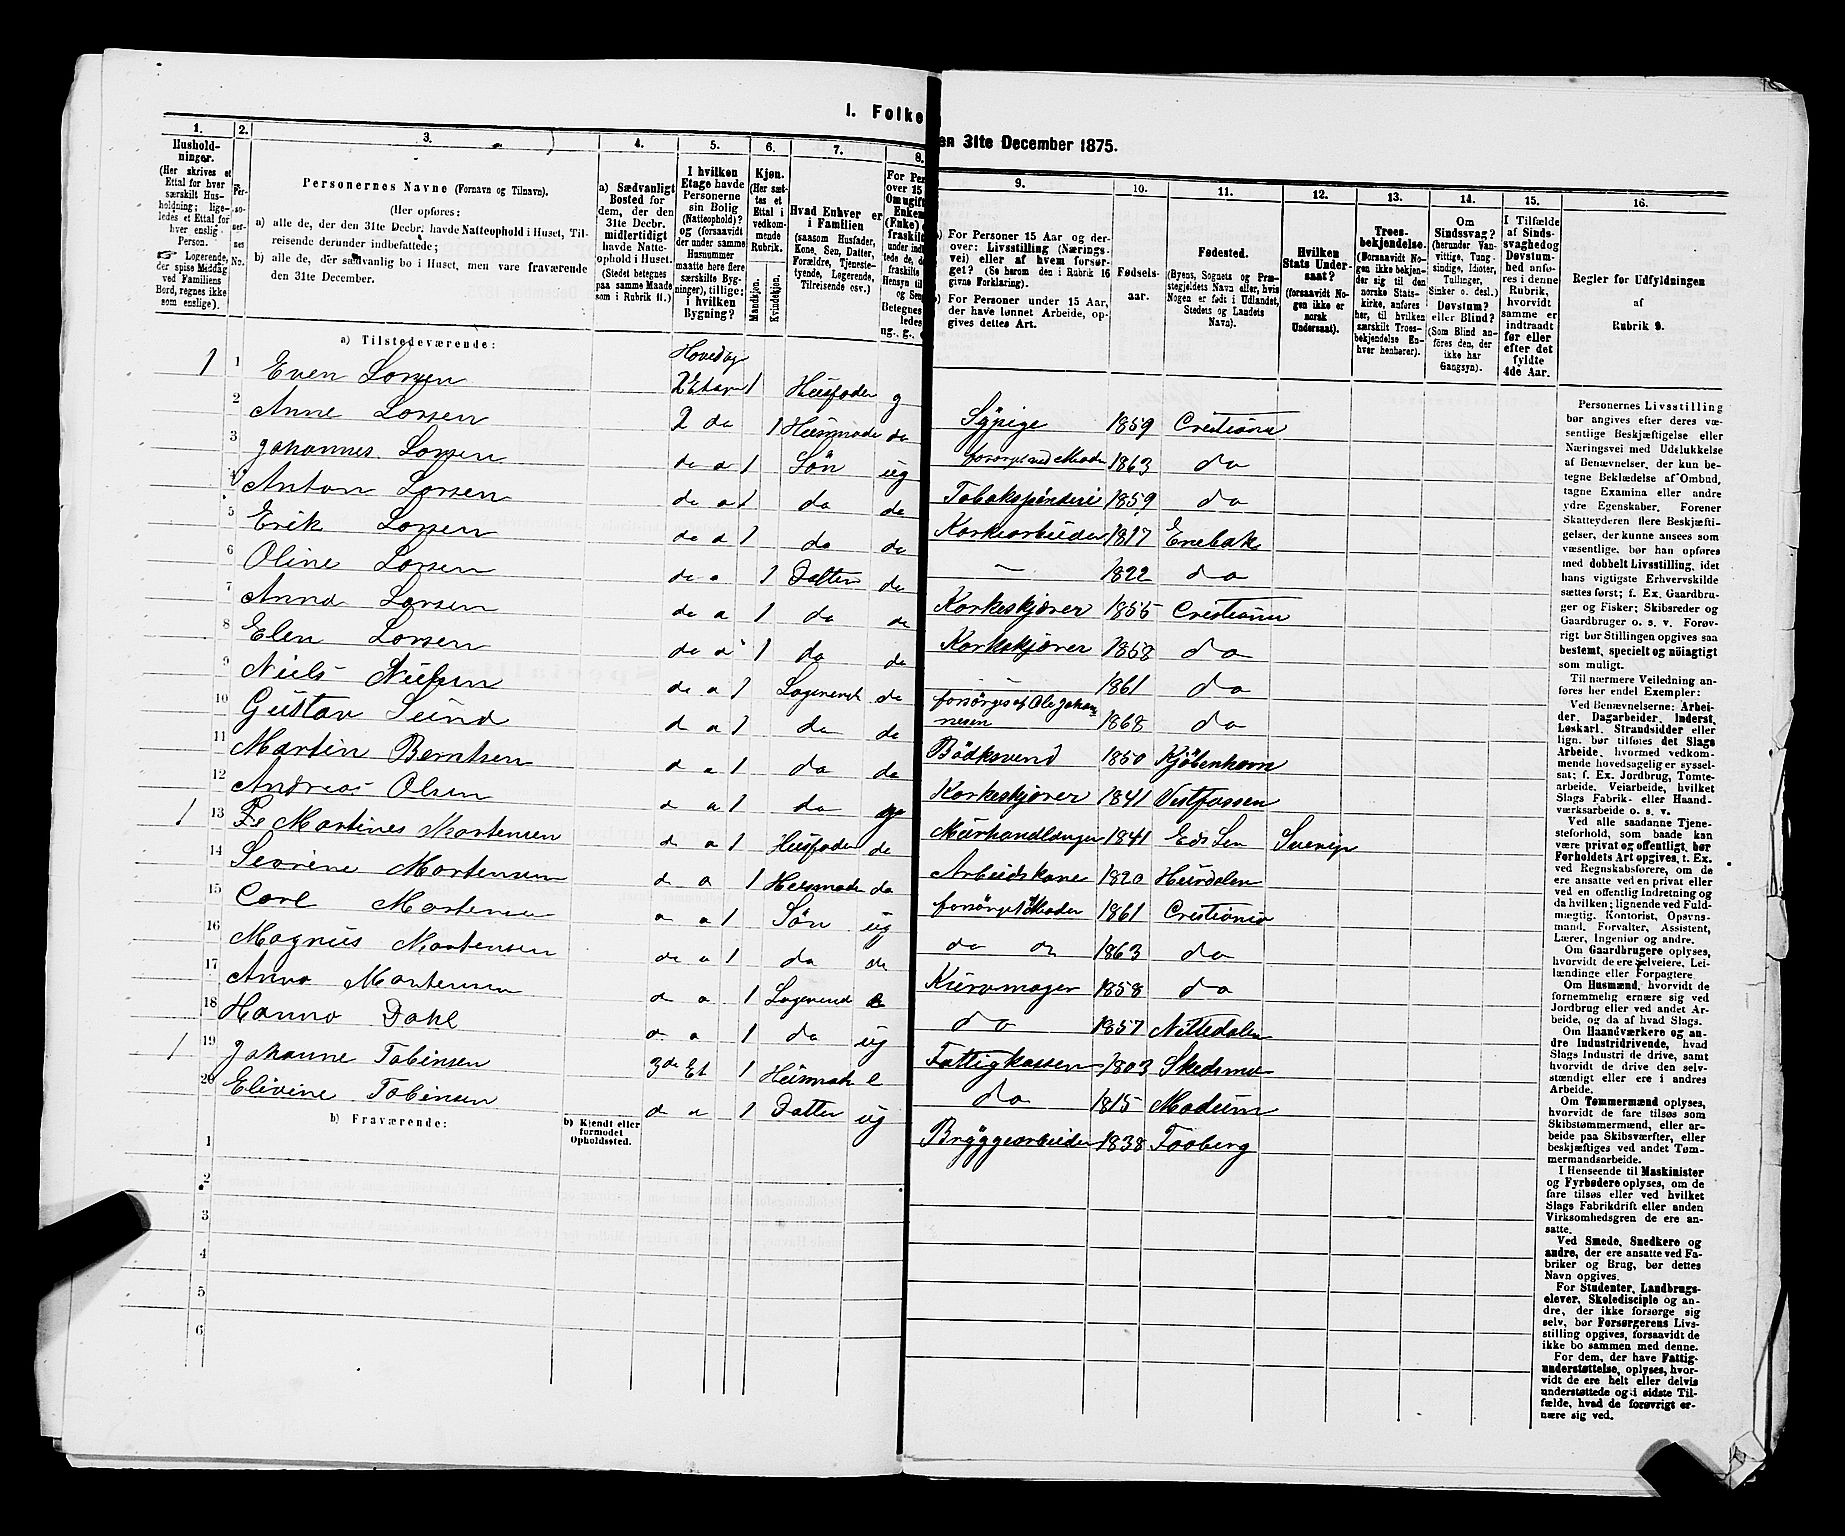 I. Folke
en 31te December 1875.
1.
Husholdninger.
(Her skrives et
Ettal for hver
særskilt Husholdning;
ligeledes et Ettal for
hver enslig
Person.
Logerende,
der spise Middag
ved Familiens
Bord, regnes ikke
som enslige).
2.
Personernes
No.
3.
Personernes Navne (Fornavn og Tilnavn).
(Her opføres:
a) alle de, der den 31te Decbr. havde Natteophold i Huset, Tilreisende derunder indbefattede;
b) alle de, der sædvanlig bo i Huset, men vare fraværende
den 31te December.
4.
a) Sædvanligt
Bosted for
dem, der den
31te Decbr.
midlertidigt
havde Natteophold i Huset.
(Stedet betegnes
paa samme Maade
som i Rubrik 11.)
5.
I hvilken
Etage havde
Personerne
sin Bolig
(Natteophold)?
og (forsaavidt
der under samme
Husnummer
maatte høre flere
særskilte Bygninger), tillige:
i hvilken
Bygning?
6.
Kjøn.
(Her sættes et
Ettal i
vedkommende
Rubrik.
Mandkjøn.
Kvindekjøn.
7.
Hvad Enhver er
i Familien
(saasom Husfader,
Kone, Søn, Datter,
Forældre, Tjenestetyende, Logerende,
Tilreisende osv.)
8.
For Per
over 15
Omugift
Enken
(Enke)
fraskilt
9.
For Personer 15 Aar og derover: Livsstilling (Næringsvei) eller af hvem forsørget? (Se herom den i Rubrik 16
givne Forklaring).
For Personer under 15 Aar,
der have lønnet Arbeide, opgives dettes Art.
10.
Fødselsaar.
11.
Fødested.
(Byens, Sognets og Præstegjeldets Navn eller, hvis
Nogen er født i Udlandet,
Stedets og Landets
Navn).
12.
Hvilken
Stats Undersaat?
(forsaavidt Nogen ikke er
norsk
Undersaat).
13.
Troesbekjendelse.
(Forsaavidt Nogen ikke bekjender sig til den
norske Statskirke, anføres
her, til hvilken
særskilt Troesbekjendelse Enhver henhører).
14.
Om
Sindssvag?
(herunder Vanvittige, Tungsindige, Idioter,
Tullinger,
Sinker o. desl.)
Døvstum?
eller Blind?
(Som Blind anføres den, der
ikke har
Gangsyn).
15.
I Tilfælde
af Sindssvaghed og
Døvstumhed anføres i denne
Rubrik,
hvorvidt
samme er
indtraadt
før eller
efter det
fyldte
4de Aar.
16.
Regler for Udfyldningen
af
Rubrik 9.
a) Tilstedeværende:
1 1 Even Larsen Hovedbg 2 Etage 1 Husfader g
2 Anne Larsen 2 da 1 Husmoder da Sypige 1859 Cristiania
3 Johannes Larsen da a 1 Sön ug forsørget ved Moder 1863 do
4 Anton Larsen da a 1 da da Tobakspinderi 1859 do
5 Erik Larsen da a 1 da da Korkearbeider 1817 Enebak
6 Oline Larsen da a 1 Datter da — 1822 do
7 Anna Larsen da a 1 da da Korkeskjærer 1855 Cristiania
8 Elen Larsen da a 1 da da Korkeskjærer 1858 do
9 Niels Nielsen da a 1 Logerende da — 1861 do
10 Gustav Lund da a 1 da da forsörges af Ole Johannesen 1868 do
11 Martin Berntsen d a 1 da da Bödksvend 1850 Kjöbenhavn
12 Andreas Olsen d a 1 da g Korkeskjærer 1841 Vestfossen
1 13 Martines Martensen d a 1 Husfader da Murhandlanger 1841 Eds Len Sverige
14 Sevrine Martensen d a 1 Husmoder da Arbeidskone 1820 Hurdalen
15 Carl Martensen a a 1 Sön ug forsørget Moder 1861 Cristiania
16 Magnus Martensen da a 1 da da do do 1863 do
17 Anna Martensen d a 1 Logerend Kurvmager 1858 do
18 Hanna Dahl a a 1 da ug do 1857 Nittedalen
1 19 Johanne Tobiasen 3de Et 1 Husmoder e Fattigkassen 1803 Skedsmo
20 Elivine Tobiasen d a 1 Datter ug do 1815 Modum
Bryggearbeider 1838 Faaberg
b) Fraværende:
b) Kjendt eller
formodet
Opholdssted.
1
2
3
4
5
6
Personernes Livsstilling
bør angives efter deres væsentlige Beskjæftigelse eller
Næringsvei med Udelukkelse
af Benævnelser, der kun betegne Beklædelse af Ombud,
tagne Examina eller andre
ydre Egenskaber. Forener
Skatteyderen flere Beskjæftigelser, der kunne ansees som
væsentlige, bør han opføres
med dobbelt Livsstilling, idet
hans vigtigste Erhvervskilde
sættes først; f. Ex. Gaardbruger og Fisker; Skibsreder og
Gaardbruger o. s. v. Forøvrigt bør Stillingen opgives saa
bestemt, specielt og nöiagtigt
som muligt.
Til nærmere Veiledning anføres her endel Exempler:
Ved Benævnelserne: Arbeider, Dagarbeider, Inderst,
Løskarl, Strandsidder eller
lign. bør tilføies det Slags
Arbeide, hvormed vedkommende hovedsagelig er sysselsat; f. Ex. Jordbrug, Tomtearbeide, Veiarbeide, hvilket
Slags Fabrik- eller Haandværksarbeide o. s. v.
Ved alle saadanne Tjenesteforhold, som baade kan
være privat og offentligt, bør
Forholdets Art opgives, t. Ex.
ved Regnskabsførere, om de
ere ansatte ved en privat eller
ved en offentlig Indretning og
da hvilken; lignende ved Fuldmægtig, Kontorist, Opsynsmand, Forvalter, Assistent,
Lærer, Ingeniør og andre.
Om Gaardbrugere oplyses,
hvorvidt de ere Selveiere, Leilændinge eller Forpagtere.
Om Husmænd, hvorvidt de
fornemmelig ernære sig ved
Jordbrug eller ved andet Arbeide, og da af hvad Slags.
Om Haandværkere og andre Industridrivende, hvad
Slags Industri de drive, samt
hvorvidt de drive den selvstændigt eller ere i andres
Arbeide.
Om Tømmermænd oplyses,
hvorvidt de fare tilsøs som
Skibstømmermænd, eller arbeide paa Skibsværfter, eller
beskjæftiges ved andet Tømmermandsarbeide.
I Henseende til Maskinister
og Fyrbødere oplyses, om de
fare tilsøs eller ved hvilket
Slags Fabrikdrift eller anden
Virksomhedsgren de ere ansatte.
Ved Smede, Snedkere og
andre, der ere ansatte ved Fabriker og Brug, bør dettes
Navn opgives.
For Studenter, Landbrugselever, Skoledisciple og andre, der ikke forsørge sig
selv, bør Forsørgerens Livsstilling opgives, forsaavidt de
ikke bo sammen med denne.
For dem, der have Fattigunderstøttelse, oplyses, hvorvidt de ere helt eller delvis
understøttede og i sidste Tilfælde, hvad de forøvrigt ernære sig ved.